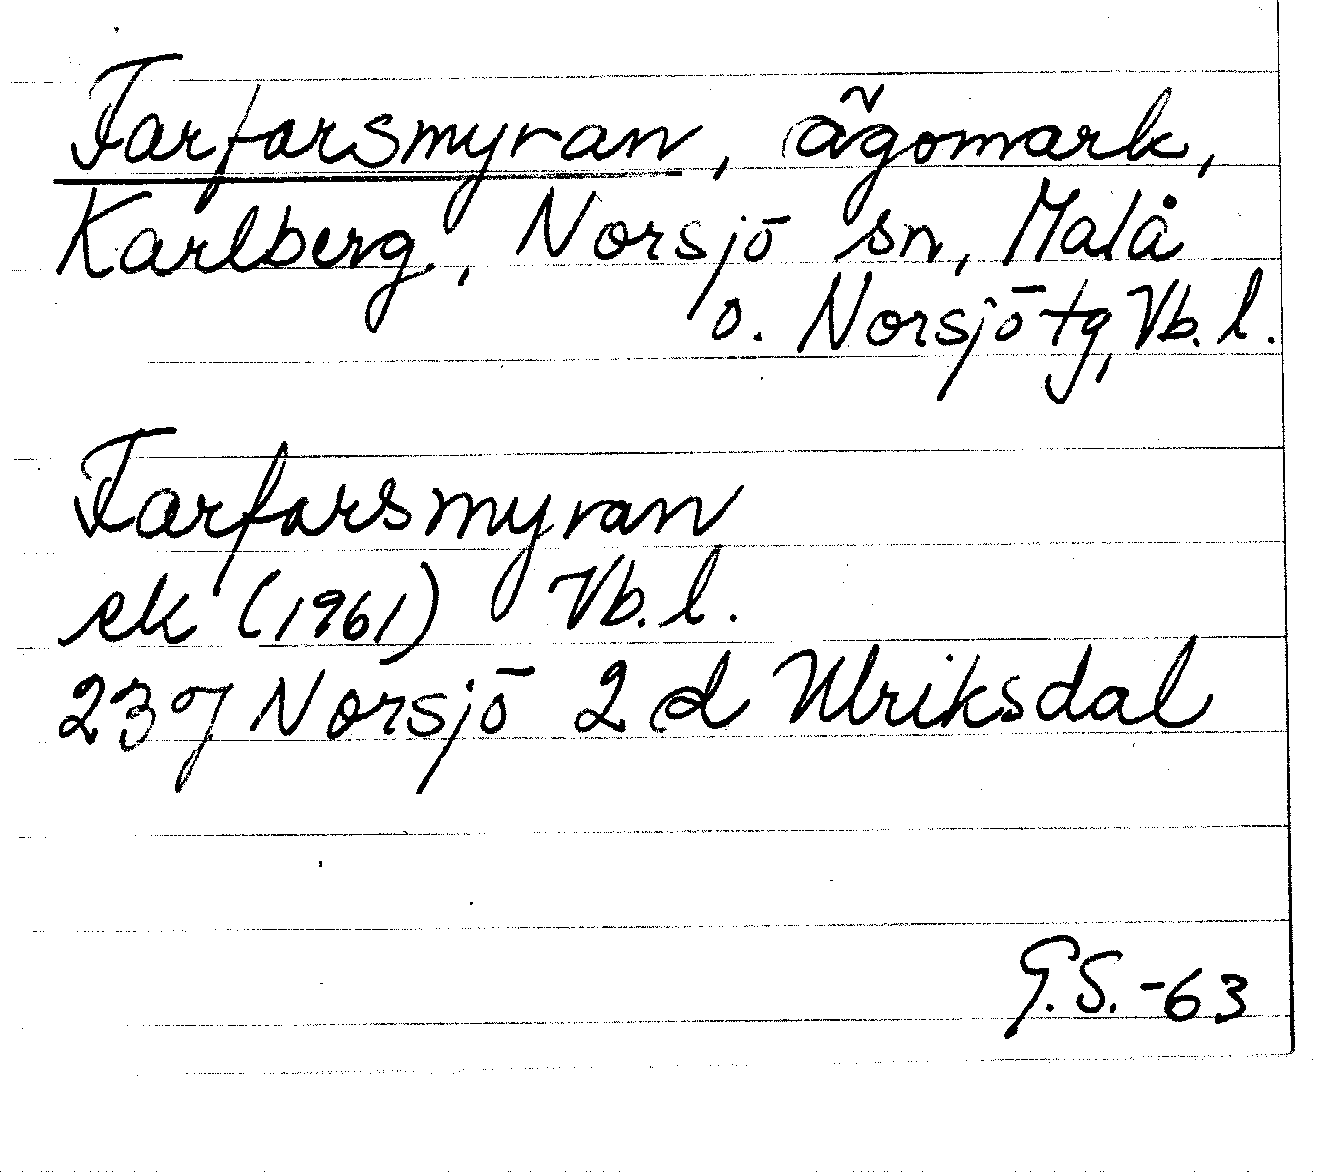 Farfarsmyran, ägomark,
Karlberg, Norsjö sn, Malå
o. Norsjö tg, Vb. l.
Farfarsmyran
ek (1961) Vb. l.
23 J Norsjö 2 d Ulriksdal
G.S.-63